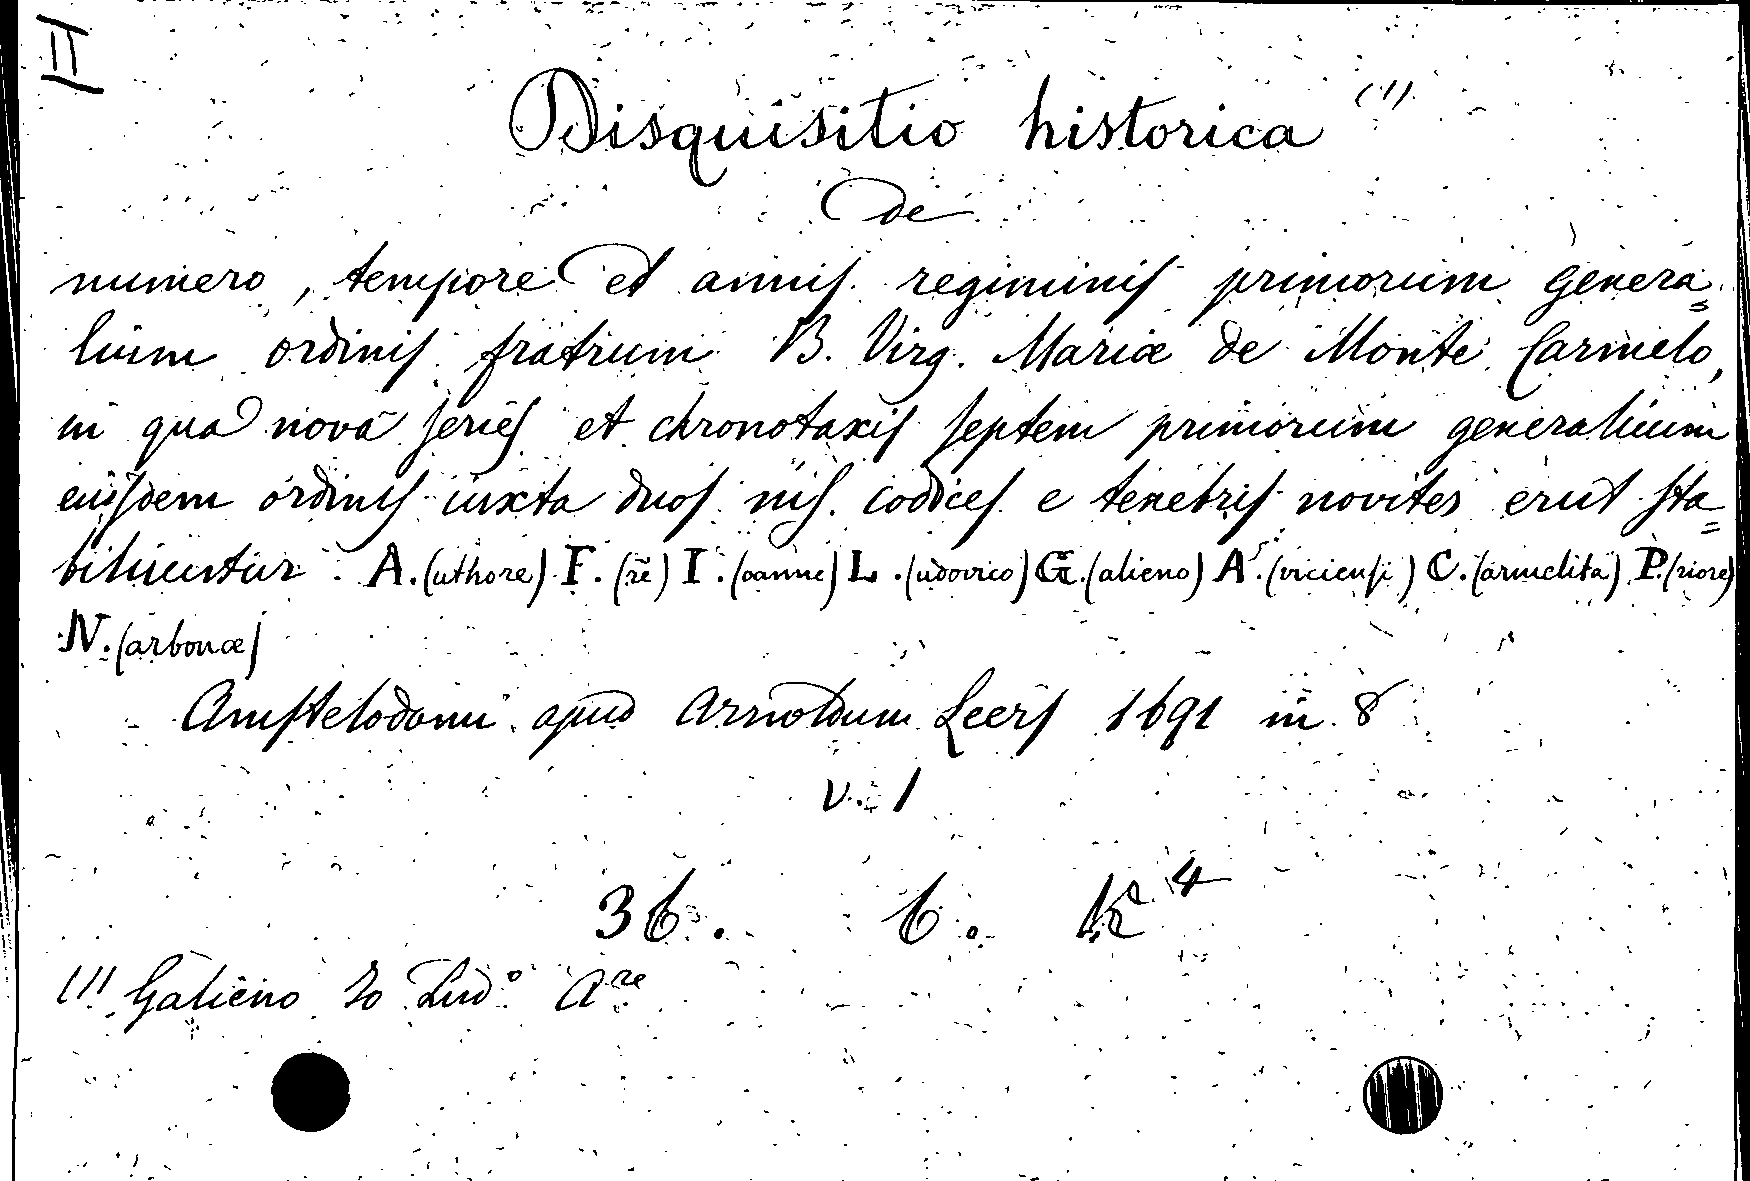 II
Disquisitio historica (1)
de
numero, tempore et annis regiminis primorum genera=
lium ordinis fratrum B. Virg. Mariæ de Monte Carmelo,
in qua nova series et chronotaxis septem primorum generalium
eiusdem ordinis iuxta duos ms. codices e tenebris noviter erut sta=
biliuntur. A.(uthore) F.(rē) I.(oanne) L.(udovico) G.(alieno) A.(viciensi) C.(armelita) P.(riore)
N.(arbonæ)
Amstelodami apud Arnoldum Leers 1691 in 8
v. 1
36. 6. K 4
(1) Galieno Io Lud° Are